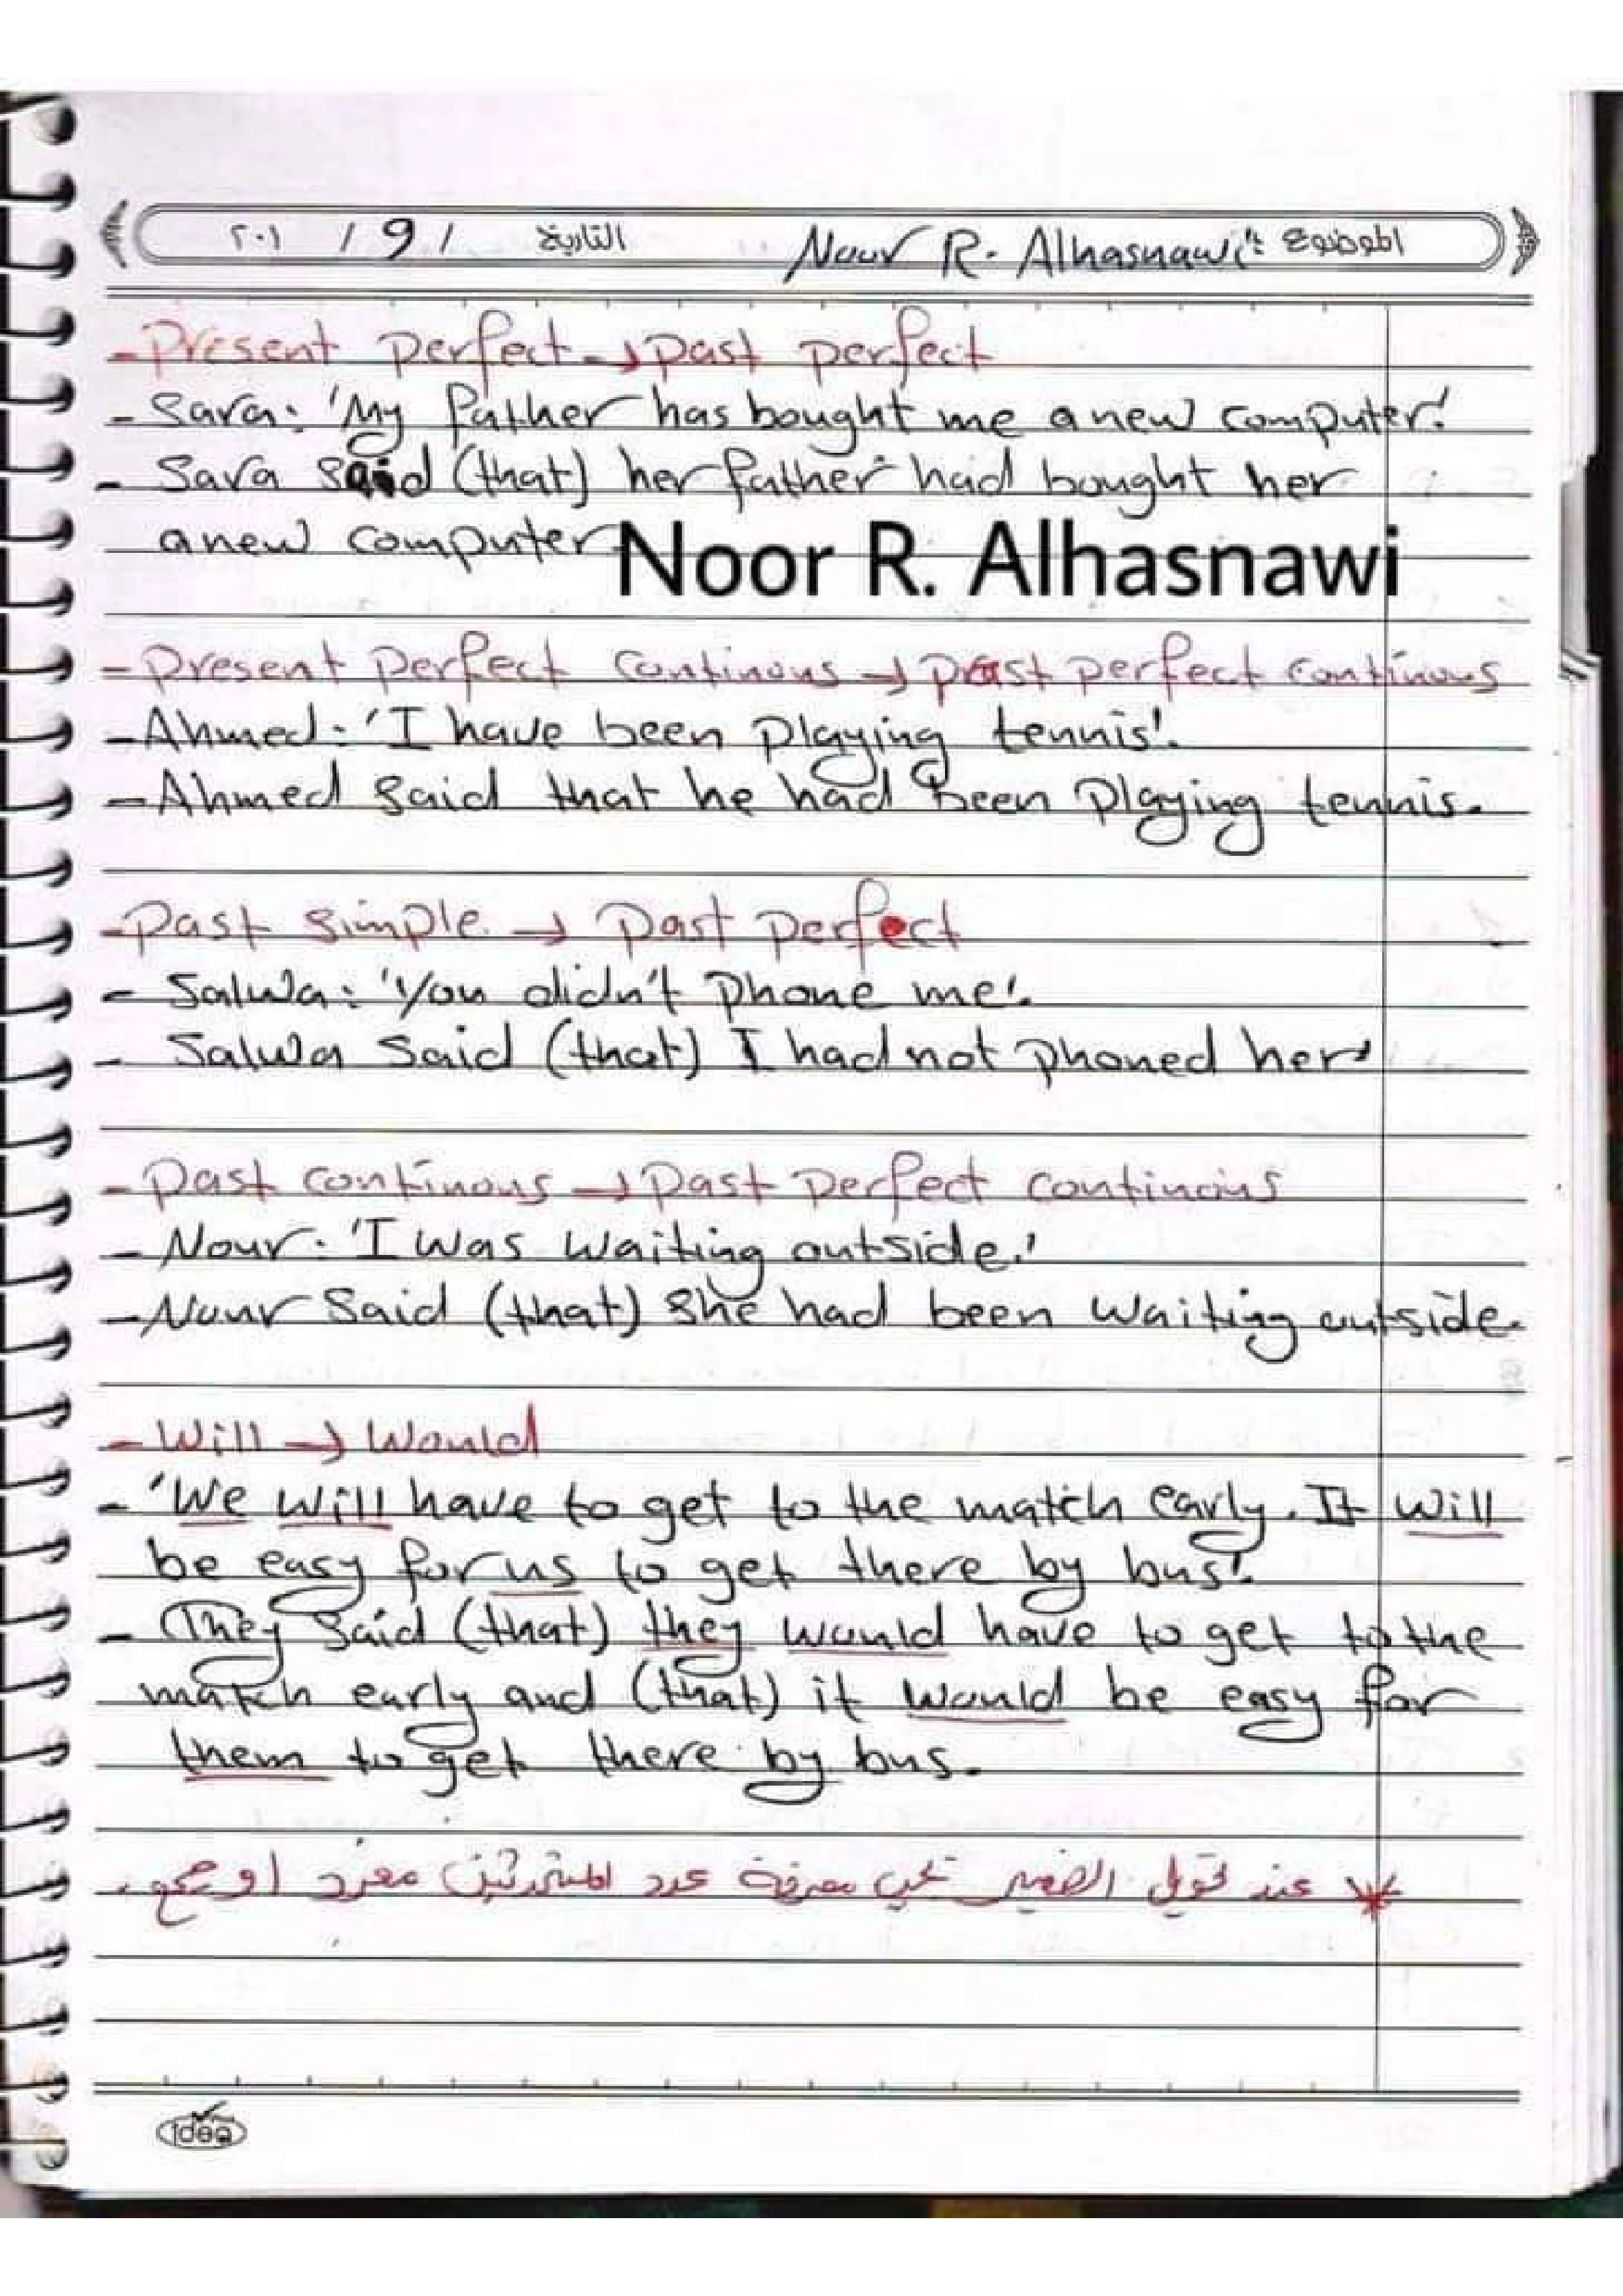 الموضوع: Noor R. Alhasnawi التاريخ / 9 / ٢٠١
- Present perfect → past perfect
- Sara: 'My father has bought me a new computer.'
- Sara said (that) her father had bought her
a new computer
Noor R. Alhasnawi
- Present perfect continous → past perfect continous
- Ahmed: 'I have been playing tennis'.
- Ahmed said that he had been playing tennis.
- Past simple → Past perfect
- Salwa: 'You didn't phone me'.
- Salwa said (that) I had not phoned her
- Past continous → Past perfect continous
- Nour: 'I was waiting outside.'
- Nour said (that) she had been waiting outside.
- Will → Would
- 'We will have to get to the match early. It will
be easy for us to get there by bus'.
- They said (that) they would have to get to the
match early and (that) it would be easy for
them to get there by bus.
* عند تحويل الضمير يجب معرفة عدد المتحدثين مفرد او جمع.
idea